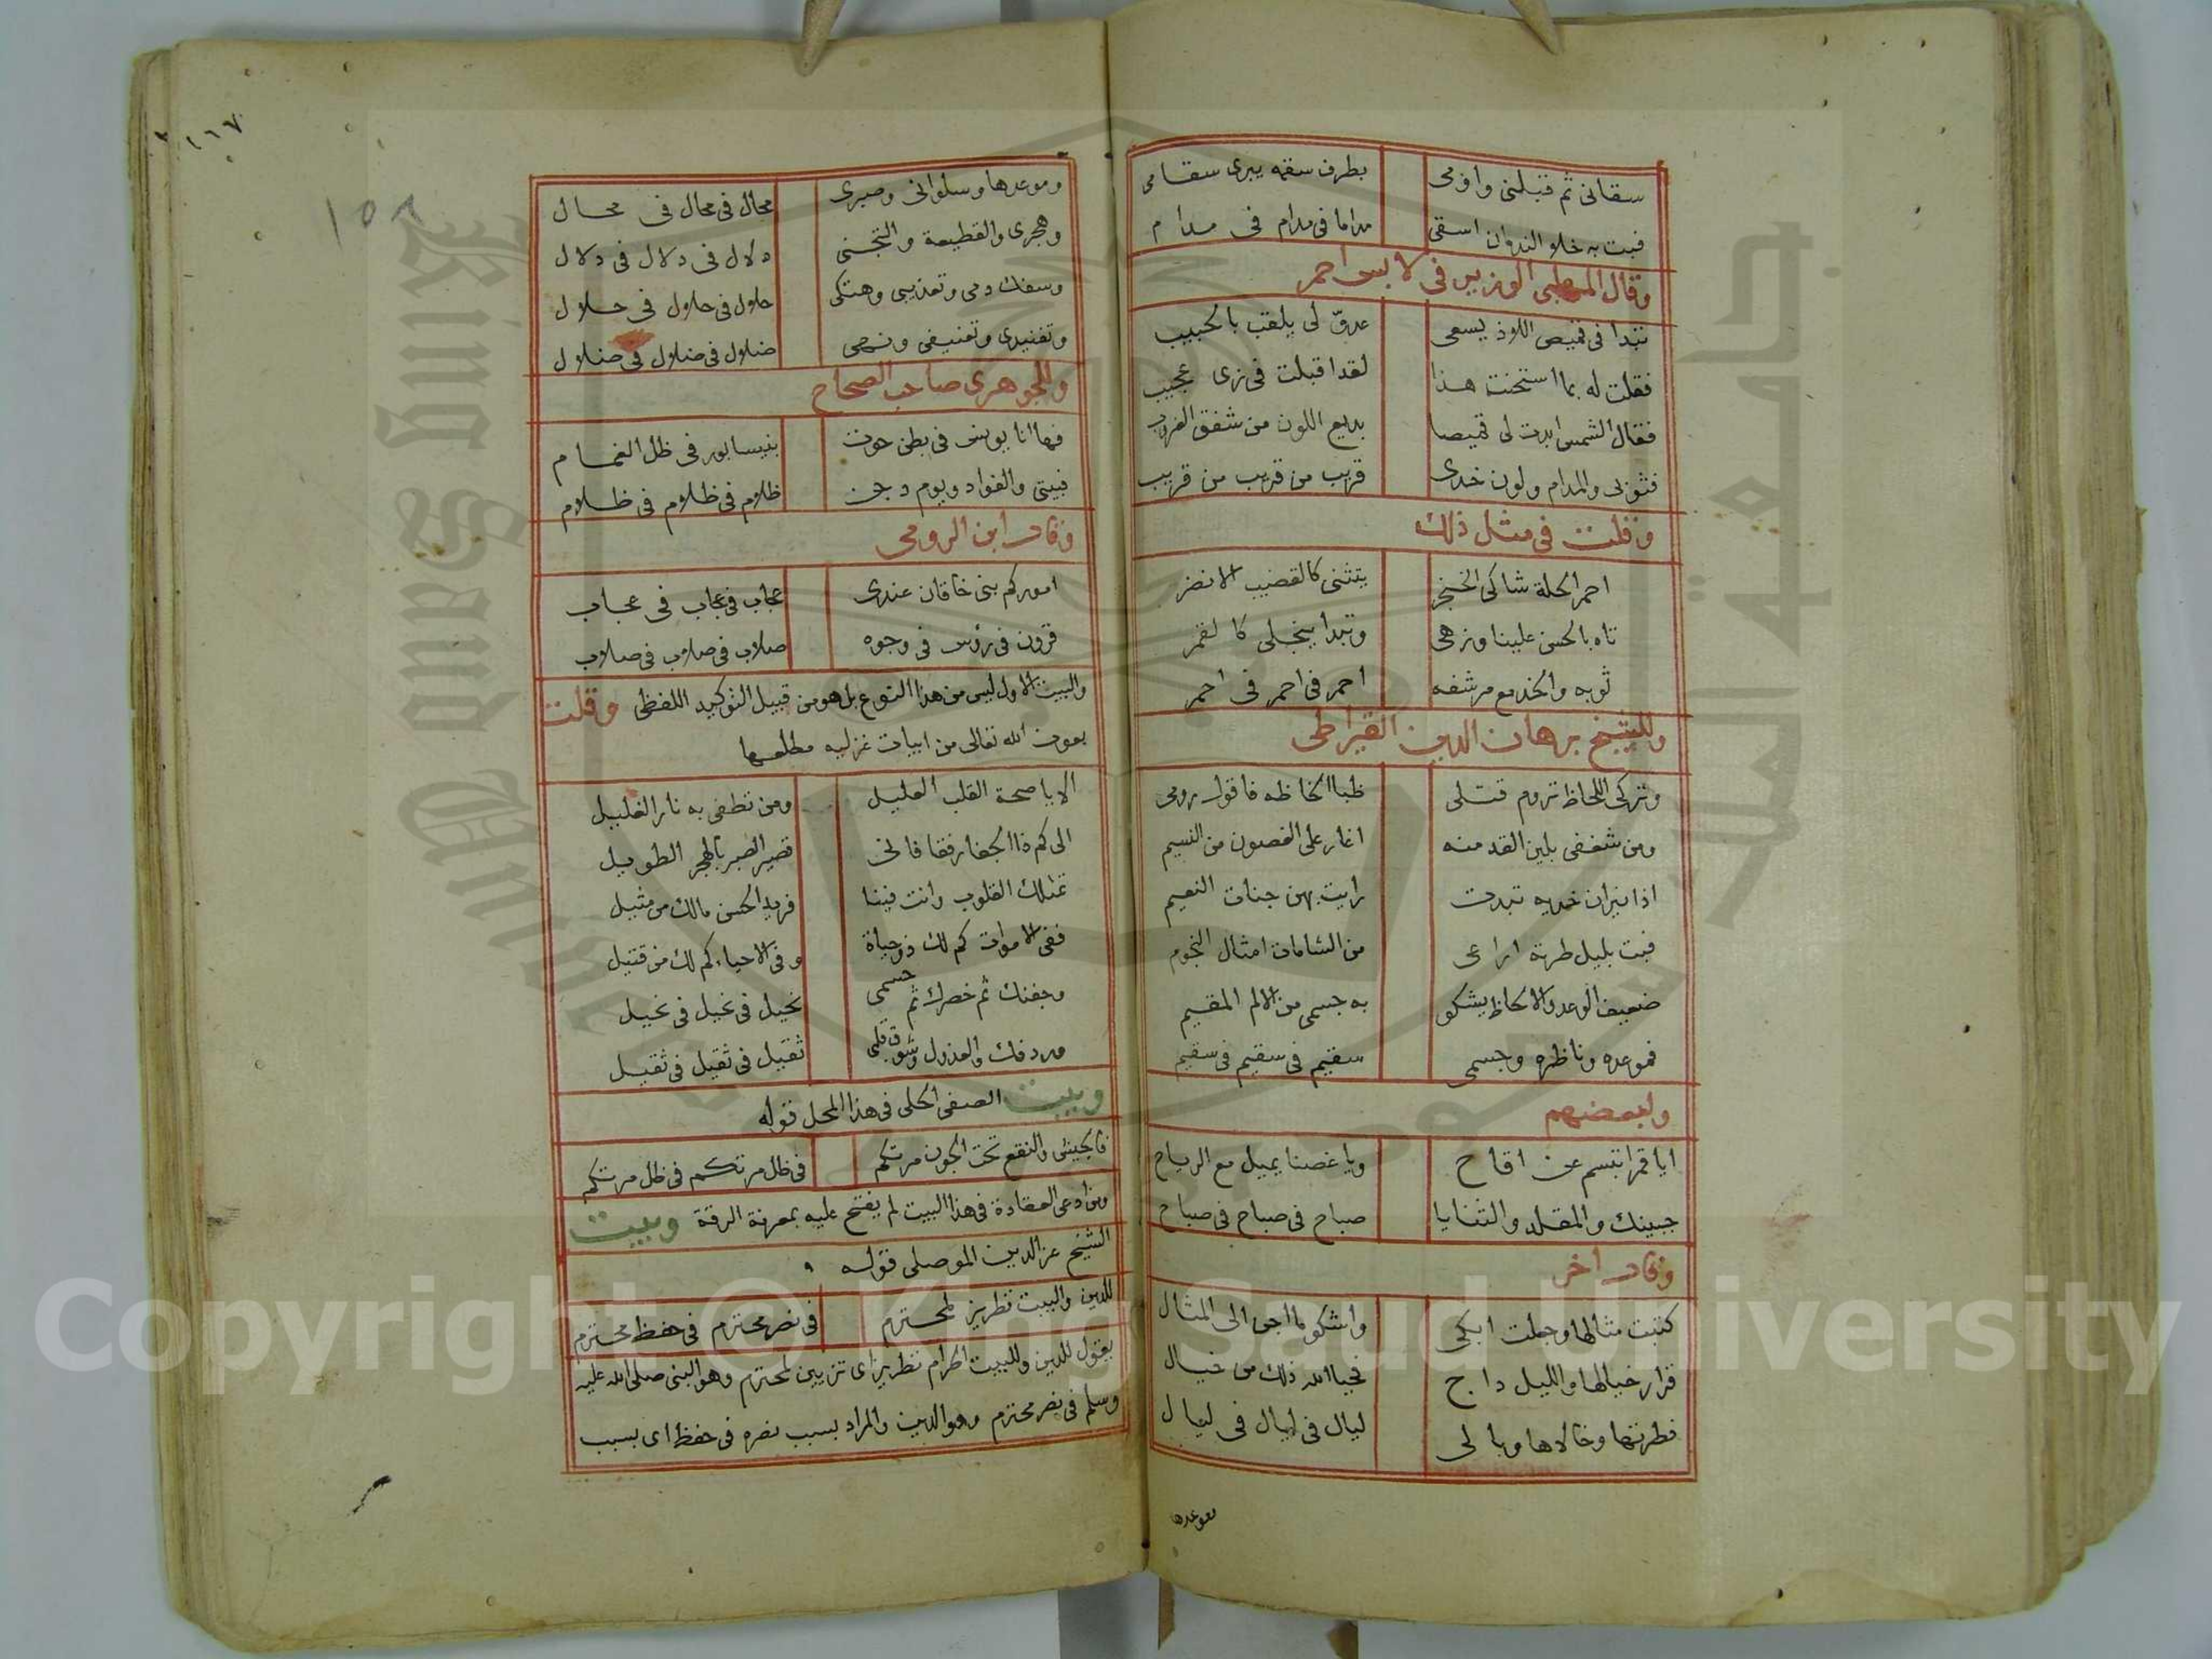 سقانى ثم قبلنى واومى بطرف سقمه يبرى سقامى
فبت به خلو الندوان اسقى مداما فى مدام فى مدام
وقال المهلبى الوزير فى لابس احمر
تبدا فى قميص اللاذ يسعى عدوّ لى يلقب بالحبيب
فقلت له بما استحنت هذا لقد اقبلت فى زى عجيب
فقال الشمس ابدت لى قميصا بديع اللون من شفق الغروب
فثوبى والمدام ولون خدى قريب من قريب من قريب
وقلت فى مثل ذلك
احمر الحلة شاكى الخنجر يتثنى كالقضيب الانضر
تاه بالحسن علينا وزهى وتبدا ينجلى كالقمر
ثوبه والخد مع مرشفه احمر فى احمر فى احمر
وللشيخ برهان الدين القيراطى
وتركى اللحاظ تروم قتلى ظبا الحاظه فاقول رومى
ومن شغفى بلين القد منه اغار على الغصون من النسيم
اذا نيران خديه تبدت رايت بهن جنات النعيم
فبت بليل طرته اراعى من الشامات امثال النجوم
ضعيف الوعد والالحاظ يشكو به جسمى من الالم المقيم
فموعده وناظره وجسمى سقيم فى سقيم فى سقيم
ولبعضهم
ايا قمرا تبسم عن اقاح ويا غصنا يميل مع الرياح
جبينك والمقلد والثنايا صباح فى صباح فى صباح
وقال اخر
كتبت مثالها وجعلت ابكى واشكو ما اجن الى المثال
فزار خيالها والليل داج فحيا الله ذلك من خيال
فطرتها وخالاها وبالى ليال فى ليال فى ليال
موعدها
١٦٧
١٥٨
وموعدها وسلوانى وصبرى محال فى محال فى محال
وهجرى والقطيعة والتجنى دلال فى دلال فى دلال
وسفك دمى وتعذيبى وهتكى حلال فى حلال فى حلال
وتفنيدى وتعنيفى ونهى ضلال فى ضلال فى ضلال
وللجوهرى صاحب الصحاح
فها انا يونس فى بطن حوت بنيسابور فى ظل الغمام
فبيتى والفواد ويوم دجن ظلام فى ظلام فى ظلام
وقال ابن الرومى
اموركم بنى خاقان عندى عجاب فى عجاب فى عجاب
قرون فى رؤس فى وجوه صلاب فى صلاب فى صلاب
والبيت الاول ليس من هذا النوع بل هو من قبيل التوكيد اللفظى وقلت
بعون الله تعالى من ابيات غزليه مطلعها
الا يا صحة القلب العليل ومن تطفى به نار الغليل
الى كم ذا الجفا رفقا فانى قصير الصبر بالهجر الطويل
تملك القلوب وانت فينا فريد الحسن مالك من مثيل
ففى الاموات كم لك ذو حياة وفى الاحياء كم لك من قتيل
وجفنك ثم خصرك ثم جسمى نحيل فى نحيل فى نحيل
وردفك والعذول وشوق قلبى ثقيل فى ثقيل فى ثقيل
وبيت الصفى الحلى فى هذا المحل قوله
فالجيش والنقع تحت الجون مرتكم فى ظل مرتكم فى ظل مرتكم
ومن ادعى العقادة فى هذا البيت لم يفتح عليه بمعرفة الرقة وبيت
الشيخ عز الدين الموصلى قوله
للدين والبيت تطريز لمحترم فى نصر محترم فى حفظ محترم
يقول للدين وللبيت اكرام تطريز اى تزيين لمحترم وهو النبى صلى الله عليه
وسلم فى نصر محترم وهو الدين والمراد بسبب نصره فى حفظ اى بسبب
Copyright © King Saud University